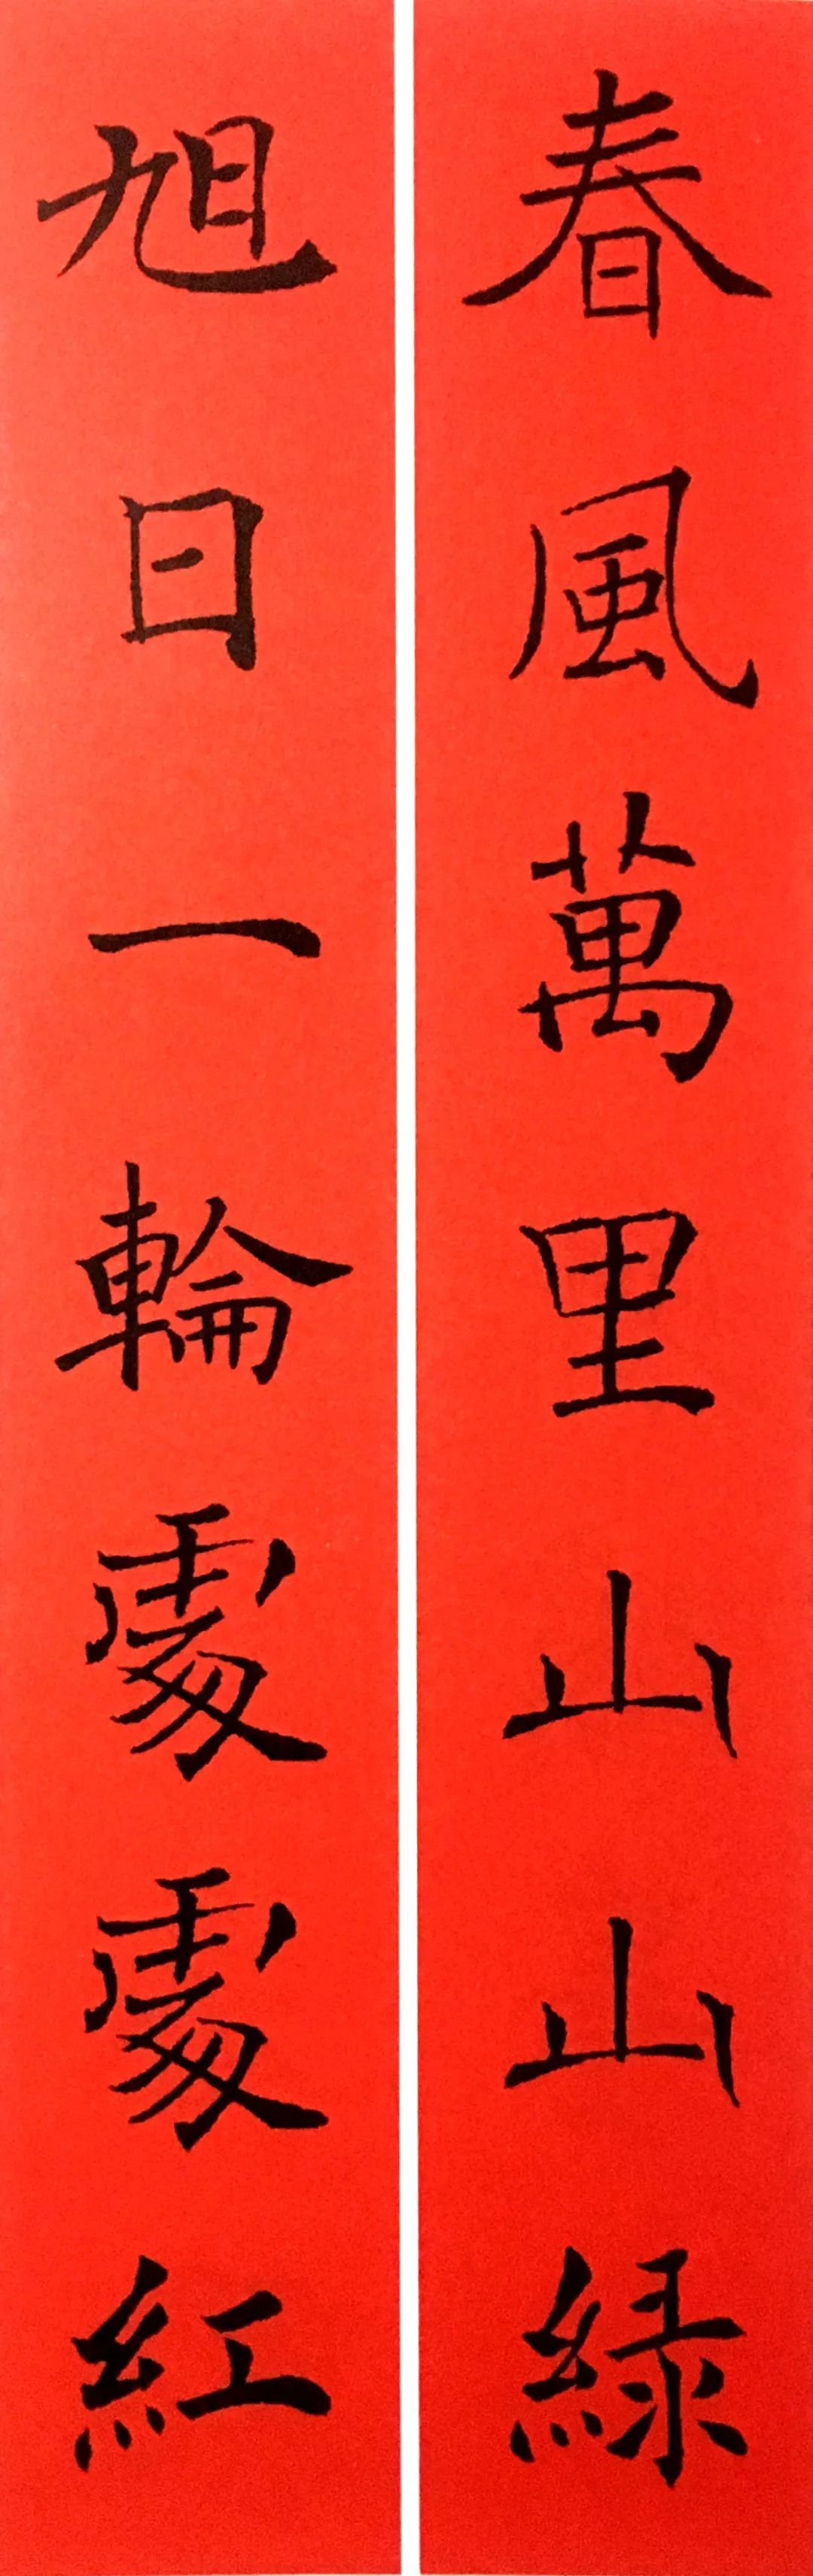 春風萬里山山緑
旭日一輪處處紅